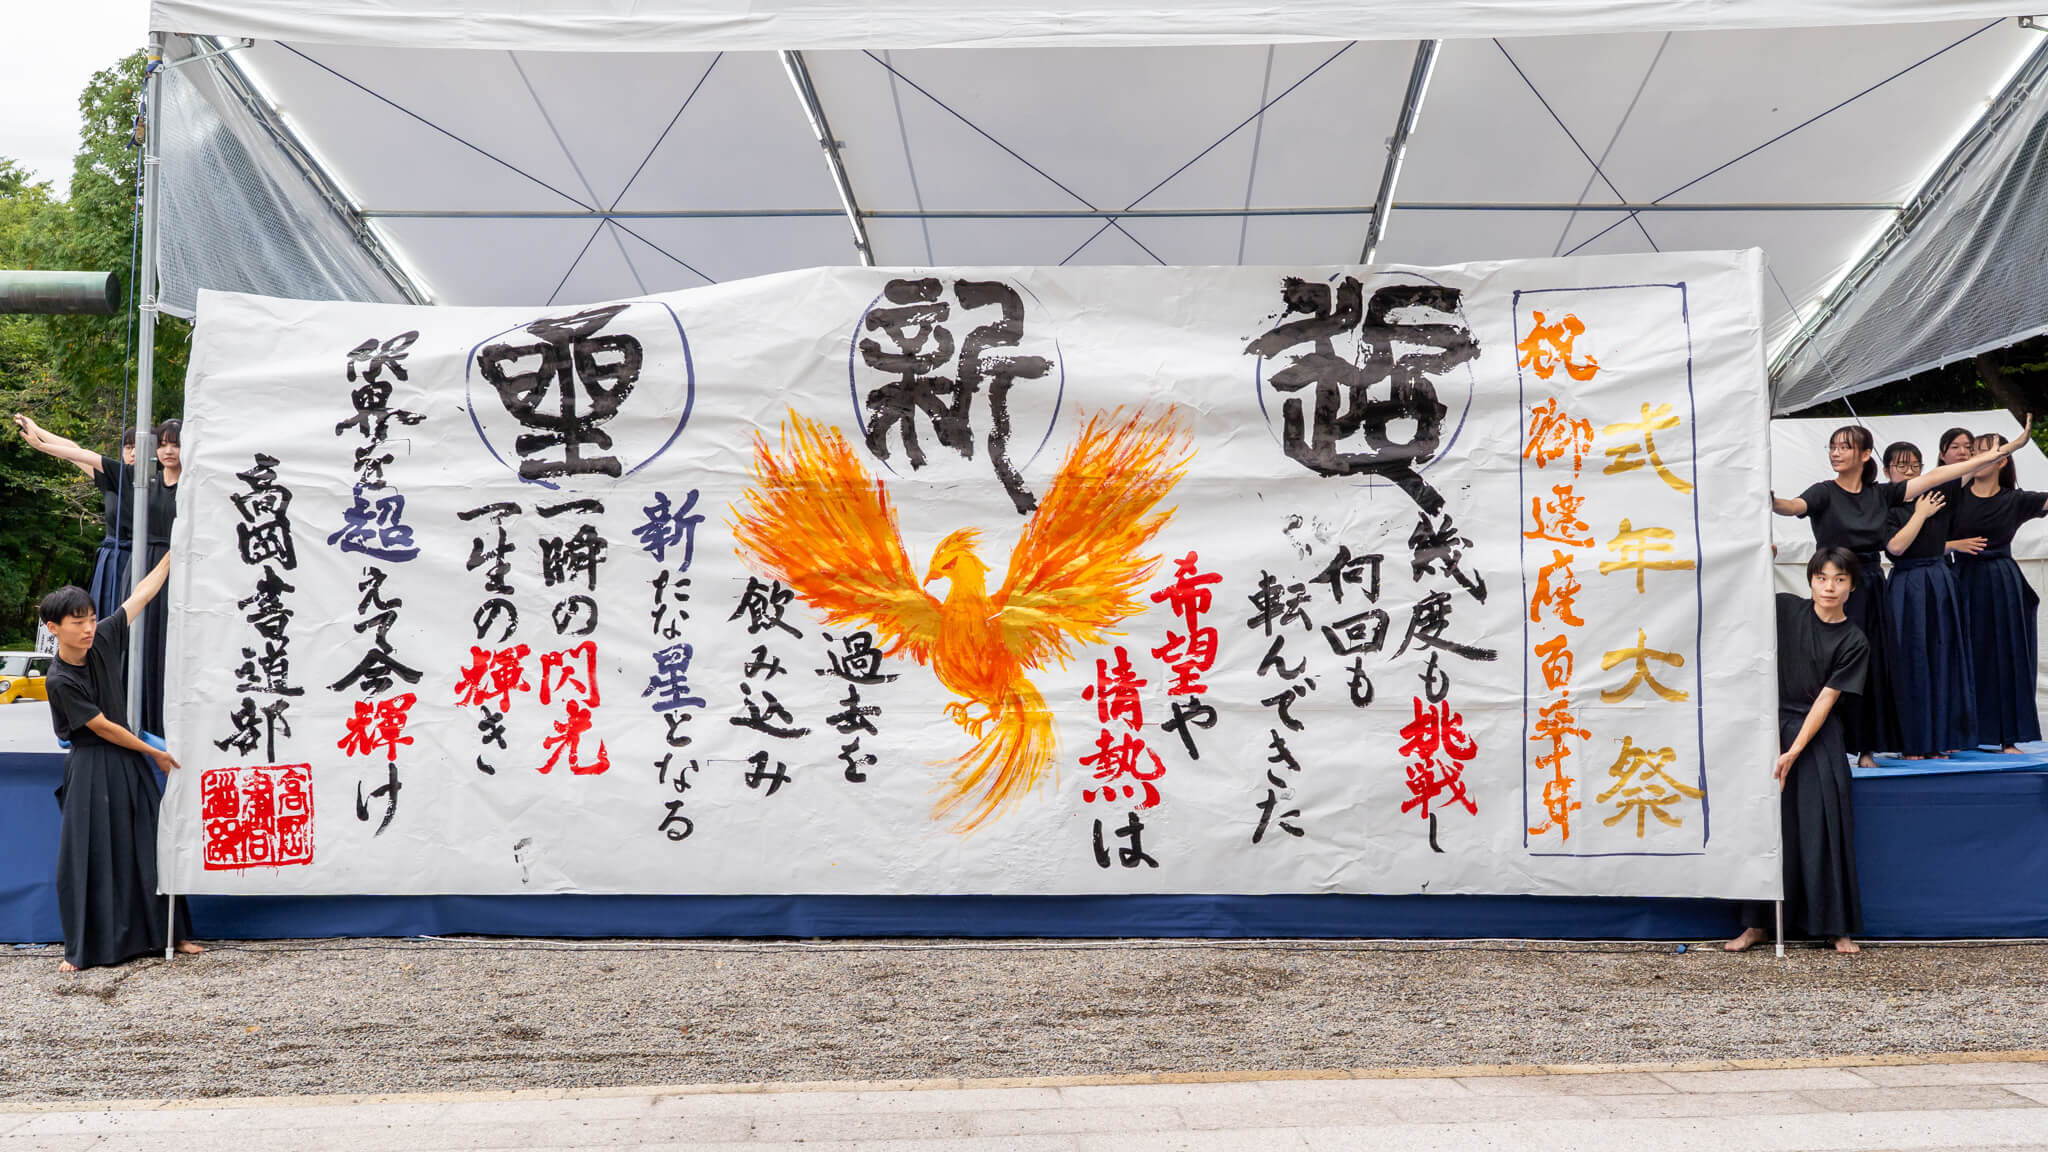 式年大祭
祝御遷座百五十年
超
新
星
幾度も挑戦し
何回も
転んできた
希望や
情熱は
過去を
飲み込み
新たな星となる
一瞬の閃光
一生の輝き
限界を超えて今輝け
高岡書道部
高岡
書
道部